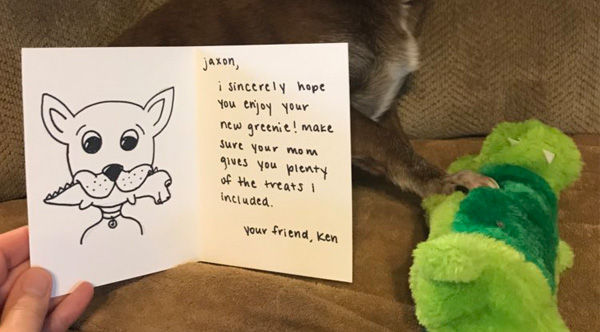 jaxon,
i sincerely hope
you enjoy your
new greenie! make
sure your mom
gives you plenty
of the treats I
included.
your friend, Ken